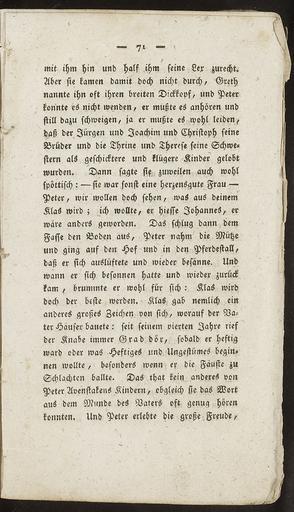 — 71 —
mit ihm hin und half ihm seine Lex zurecht.
Aber sie kamen damit doch nicht durch, Greth
nannte ihn oft ihren breiten Dickkopf, und Peter
konnte es nicht wenden, er mußte es anhören und
still dazu schweigen, ja er mußte es wohl leiden,
daß der Jürgen und Joachim und Christoph seine
Brüder und die Thrine und Therese seine Schwe-
stern als geschicktere und klügere Kinder gelobt
wurden. Dann sagte sie zuweilen auch wohl
spöttisch: — sie war sonst eine herzensgute Frau —
Peter, wir wollen doch sehen, was aus deinem
Klas wird; ich wollte, er hiesse Johannes, er
wäre anders geworden. Das schlug dann dem
Fasse den Boden aus, Peter nahm die Mütze
und ging auf den Hof und in den Pferdestall,
daß er sich auslüftete und wieder besänne. Und
wann er sich besonnen hatte und wieder zurück
kam, brummte er wohl für sich: Klas wird
doch der beste werden. Klas gab nemlich ein
anderes großes Zeichen von sich, worauf der Va-
ter Häuser bauete: seit seinem vierten Jahre rief
der Knabe immer Grad dör, sobald er heftig
ward oder was Heftiges und Ungestümes begin-
nen wollte, besonders wenn er die Fäuste zu
Schlachten ballte. Das that kein anderes von
Peter Avenstakens Kindern, obgleich sie das Wort
aus dem Munde des Vaters oft genug hören
konnten. Und Peter erlebte die große Freude,